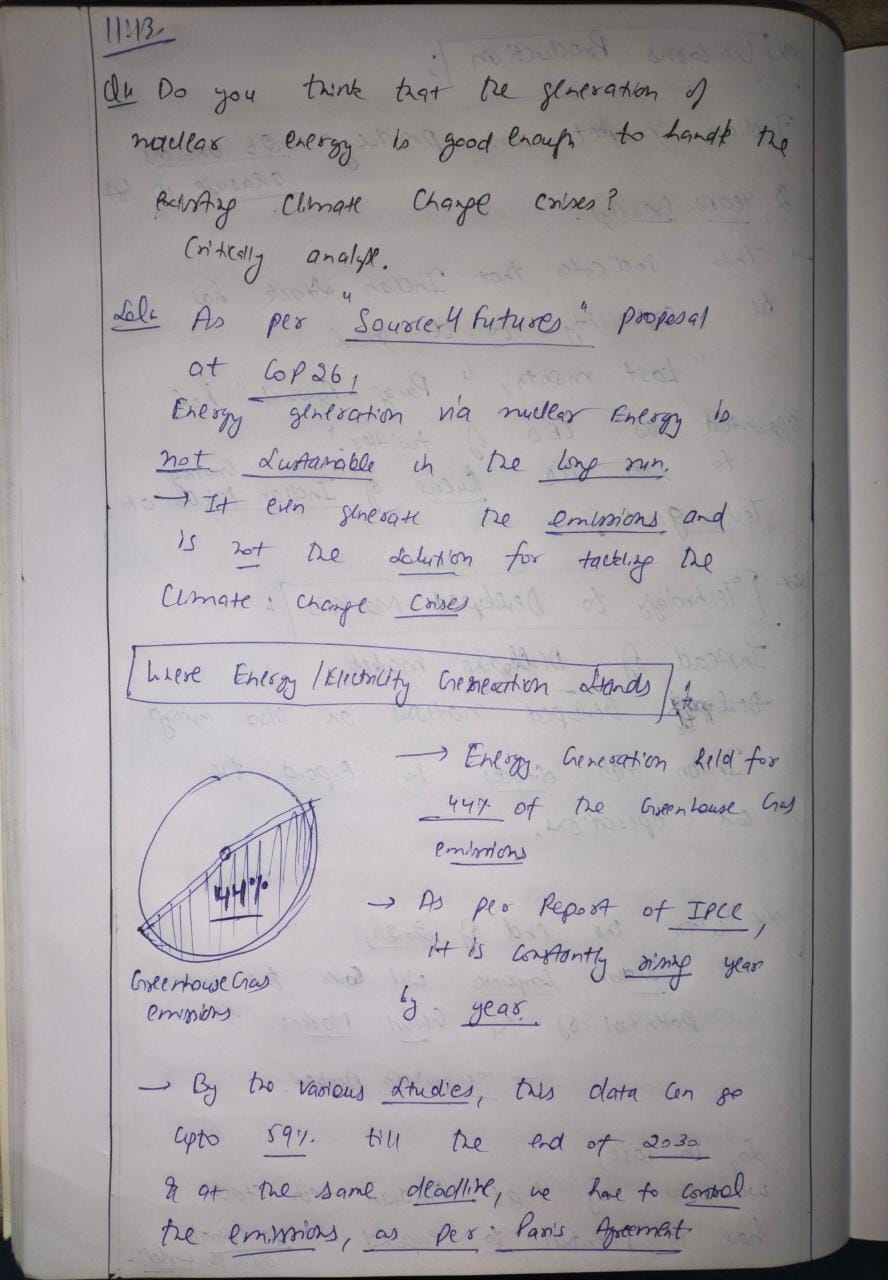 11:43
Qu Do you think that the generation of
nuclear energy is good enough to handle the
existing Climate Change crises?
Critically analyse.
Sol: As per "Source 4 Futures" proposal
at COP 26,
Energy generation via nuclear Energy is
not sustainable in the long run.
→ It even generate the emissions and
is not the solution for tackling the
Climate change crises
Where Energy / Electricity Generation stands
→ Energy Generation held for
44% of the Greenhouse Gas
emissions
44%
→ As per Report of IPCC,
it is constantly rising year
by year.
Greenhouse Gas
emissions
→ By the various studies, this data can go
upto 59% till the end of 2030
& at the same deadline, we have to control
the emissions, as per Paris Agreement